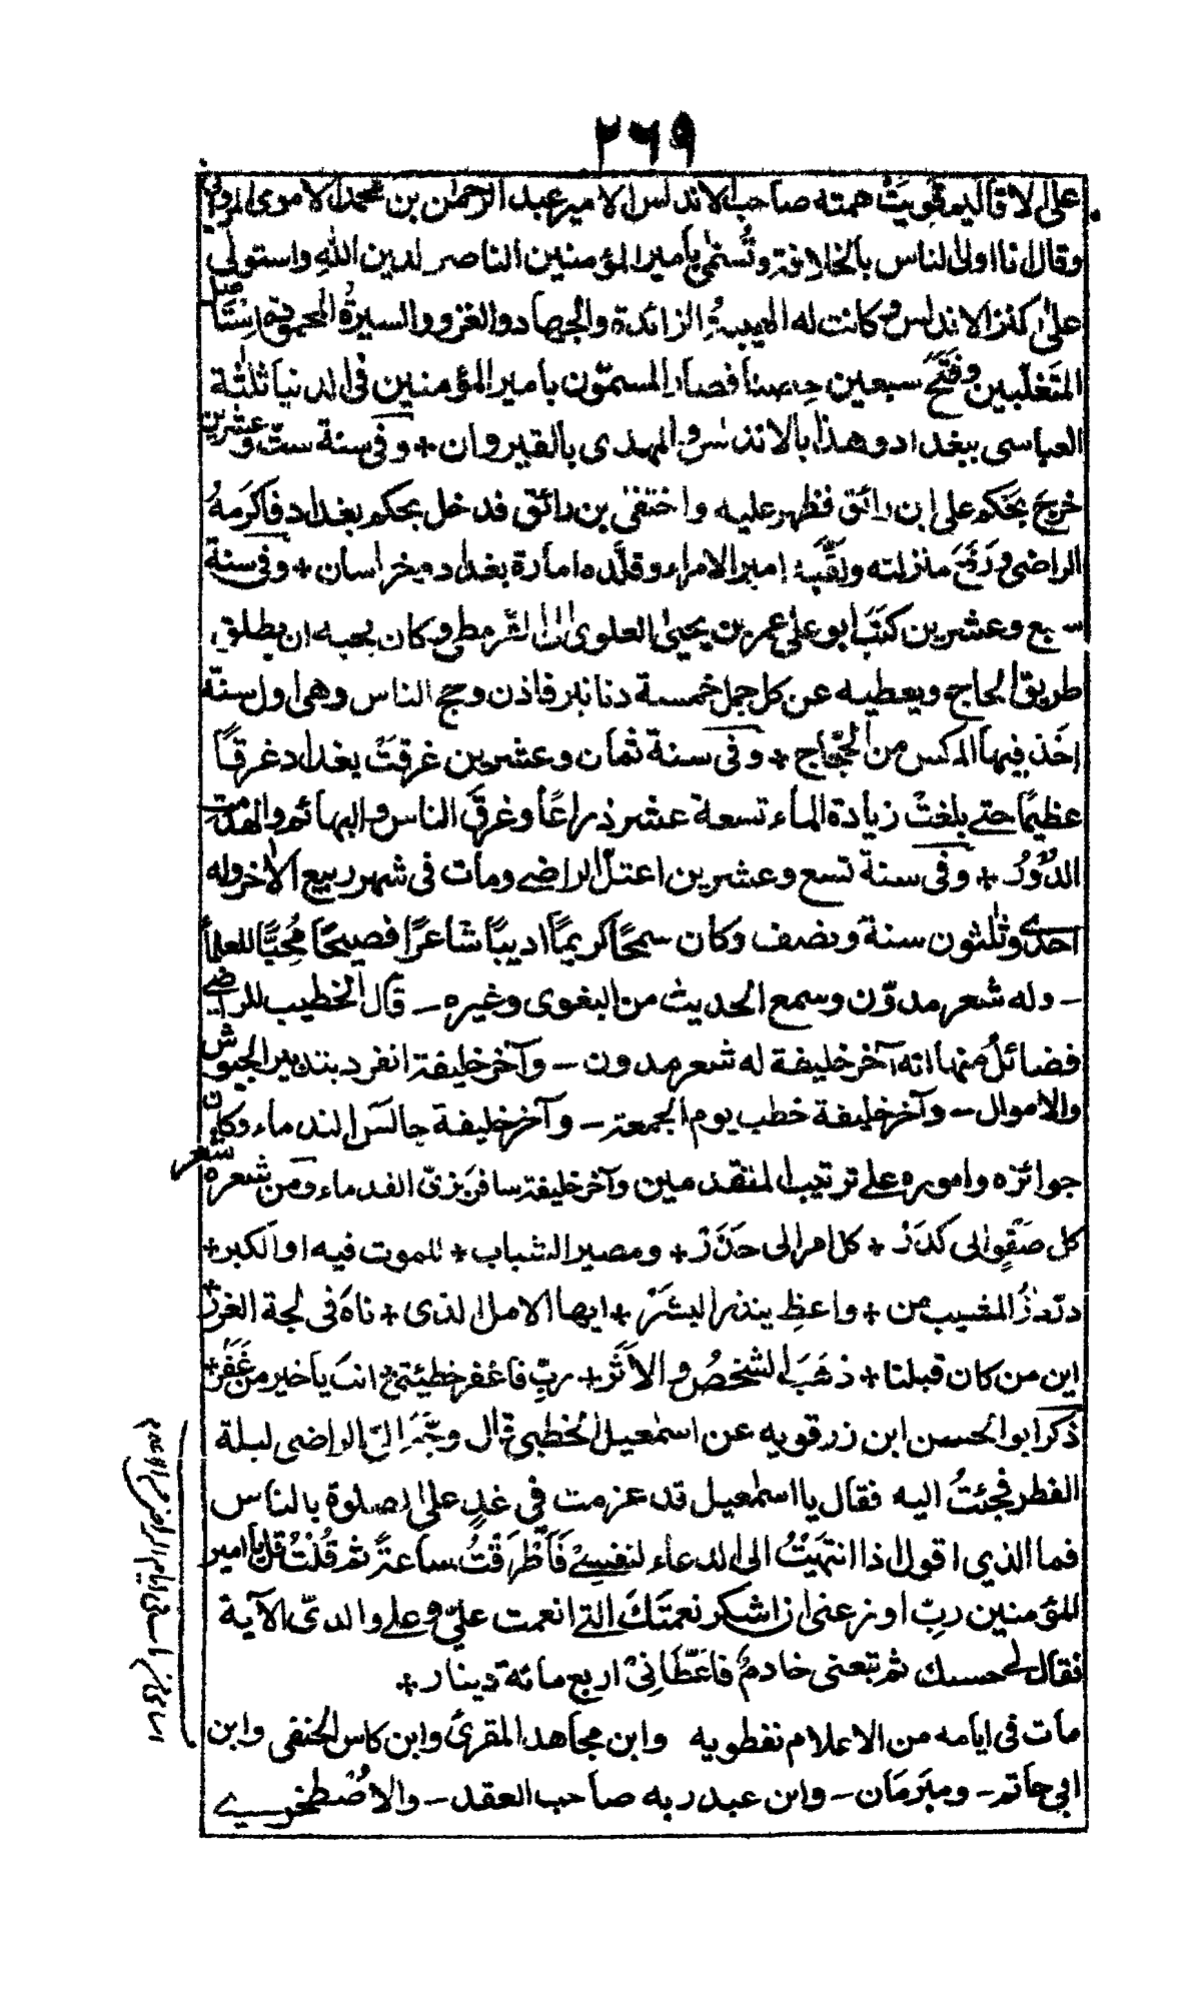 ٢٦٩
على الاقاليم قويت همته صاحب الاندلس الامير عبد الرحمٰن بن محمد الاموى المروانى
وقال انا اولى الناس بالخلافة وتُسَمّٰى بامير المؤمنين الناصر لدين الله واستولى
على اكثر الاندلس وكانت له الهيبةُ الزائدة والجهاد والغزو والسيرةُ المحمودة اسْتَأصل
المتَغَلّبين وفَتَحَ سبعين حِصنا فصار المسمّون بامير المؤمنين فى الدنيا ثلثة
العباسى ببغداد وهذا بالاندلس والمهدى بالقيروان + وفى سنة ستّ وعشرين
خرج بجكم على ابن رائق فظهر عليه واختفى بن رائق فدخل بجكم بغداد فاكرَمهُ
الراضى ورَفَعَ منزلته ولقَّبَه امير الامراء وقلّده امارة بغداد وخراسان + وفى سنة
سبع وعشرين كتَبَ ابو على عمر بن يحيى العلوى الى القرمطى وكان يحبه ان يطلق
طريق الحاج ويعطيه عن كل جمل خمسة دنانير فاذن وحج الناس وهى اول سنّة
اخذ فيها المكس من الحُجّاج + وفى سنة ثمان وعشرين غرقتْ بغداد غرقًا
عظيمًا حتے بلغتْ زيادة الماء تسعة عشر ذراعًا وغرق الناس والبهائم وانهدمت
الدُوْرُ + وفى سنة تسع وعشرين اعتلّ الراضے ومات فى شهر ربيع الاٰخر وله
احدى وثلٰثون سنة ونصف وكان سمحًا كريمًا اديبًا شاعرًا فصيحًا مُحِبًّا للعلماء
- وله شعر مدوّن وسمع الحديث من البغوى وغيره - قال الخطيب للراضے
فضائلُ منها انه آخر خليفة له شعر مدون - وآخر خليفة انفرد بتدبير الجيوش
والاموال - وآخر خليفة خطب يوم الجمعة - وآخر خليفة جالسَ الندماء وكان
جوائزه واموره علے ترتيب المتقدمين وآخر خليفة سافر بزىّ القدماء ومن شعره شعر
كل صَفْوٍ الى كَدَرْ + كل امر الى حَذَرْ + ومصير الشباب + للموت فيه او الكبر +
درّ درُّ المشيب من + واعظٍ ينذر البشَرْ + ايها الامل الذى + تاهَ فى لجة الغرر +
اين من كان قبلنا + ذهَبَ الشخصُ والاَثَر + ربِّ فاغفر خطيئتى + انتَ يا خير من غَفَرْ +
ذكر ابو الحسن ابن زرقويه عن اسمٰعيل الخطبى قال وجّهَ الىّ الراضى ليلة
الفطر فجئتُ اليه فقال يا اسمٰعيل قد عزمت فى غدٍ على الصلوة بالناس
فما الذي اقول اذا انتهَيْتُ الى الدعاء لنفسِىْ فَاَطْرَقْتُ ساعةً ثم قُلْتُ قل يا امير
المؤمنين ربِّ اوزعنى ان اشكر نعمتَكَ التے انعمت علىّ وعلے والدىّ الآية
فقال لى حسبك ثم تبعنى خادمٌ فاعْطَانِىْ اربع مائة دينار +
مات فى ايامه من الاعلام نفطويه وابن مجاهد المقرئ وابن كاس الحنفى وابن
ابى حاتم - ومبرمان - وابن عبد ربه صاحب العقد - والاصْطخرے